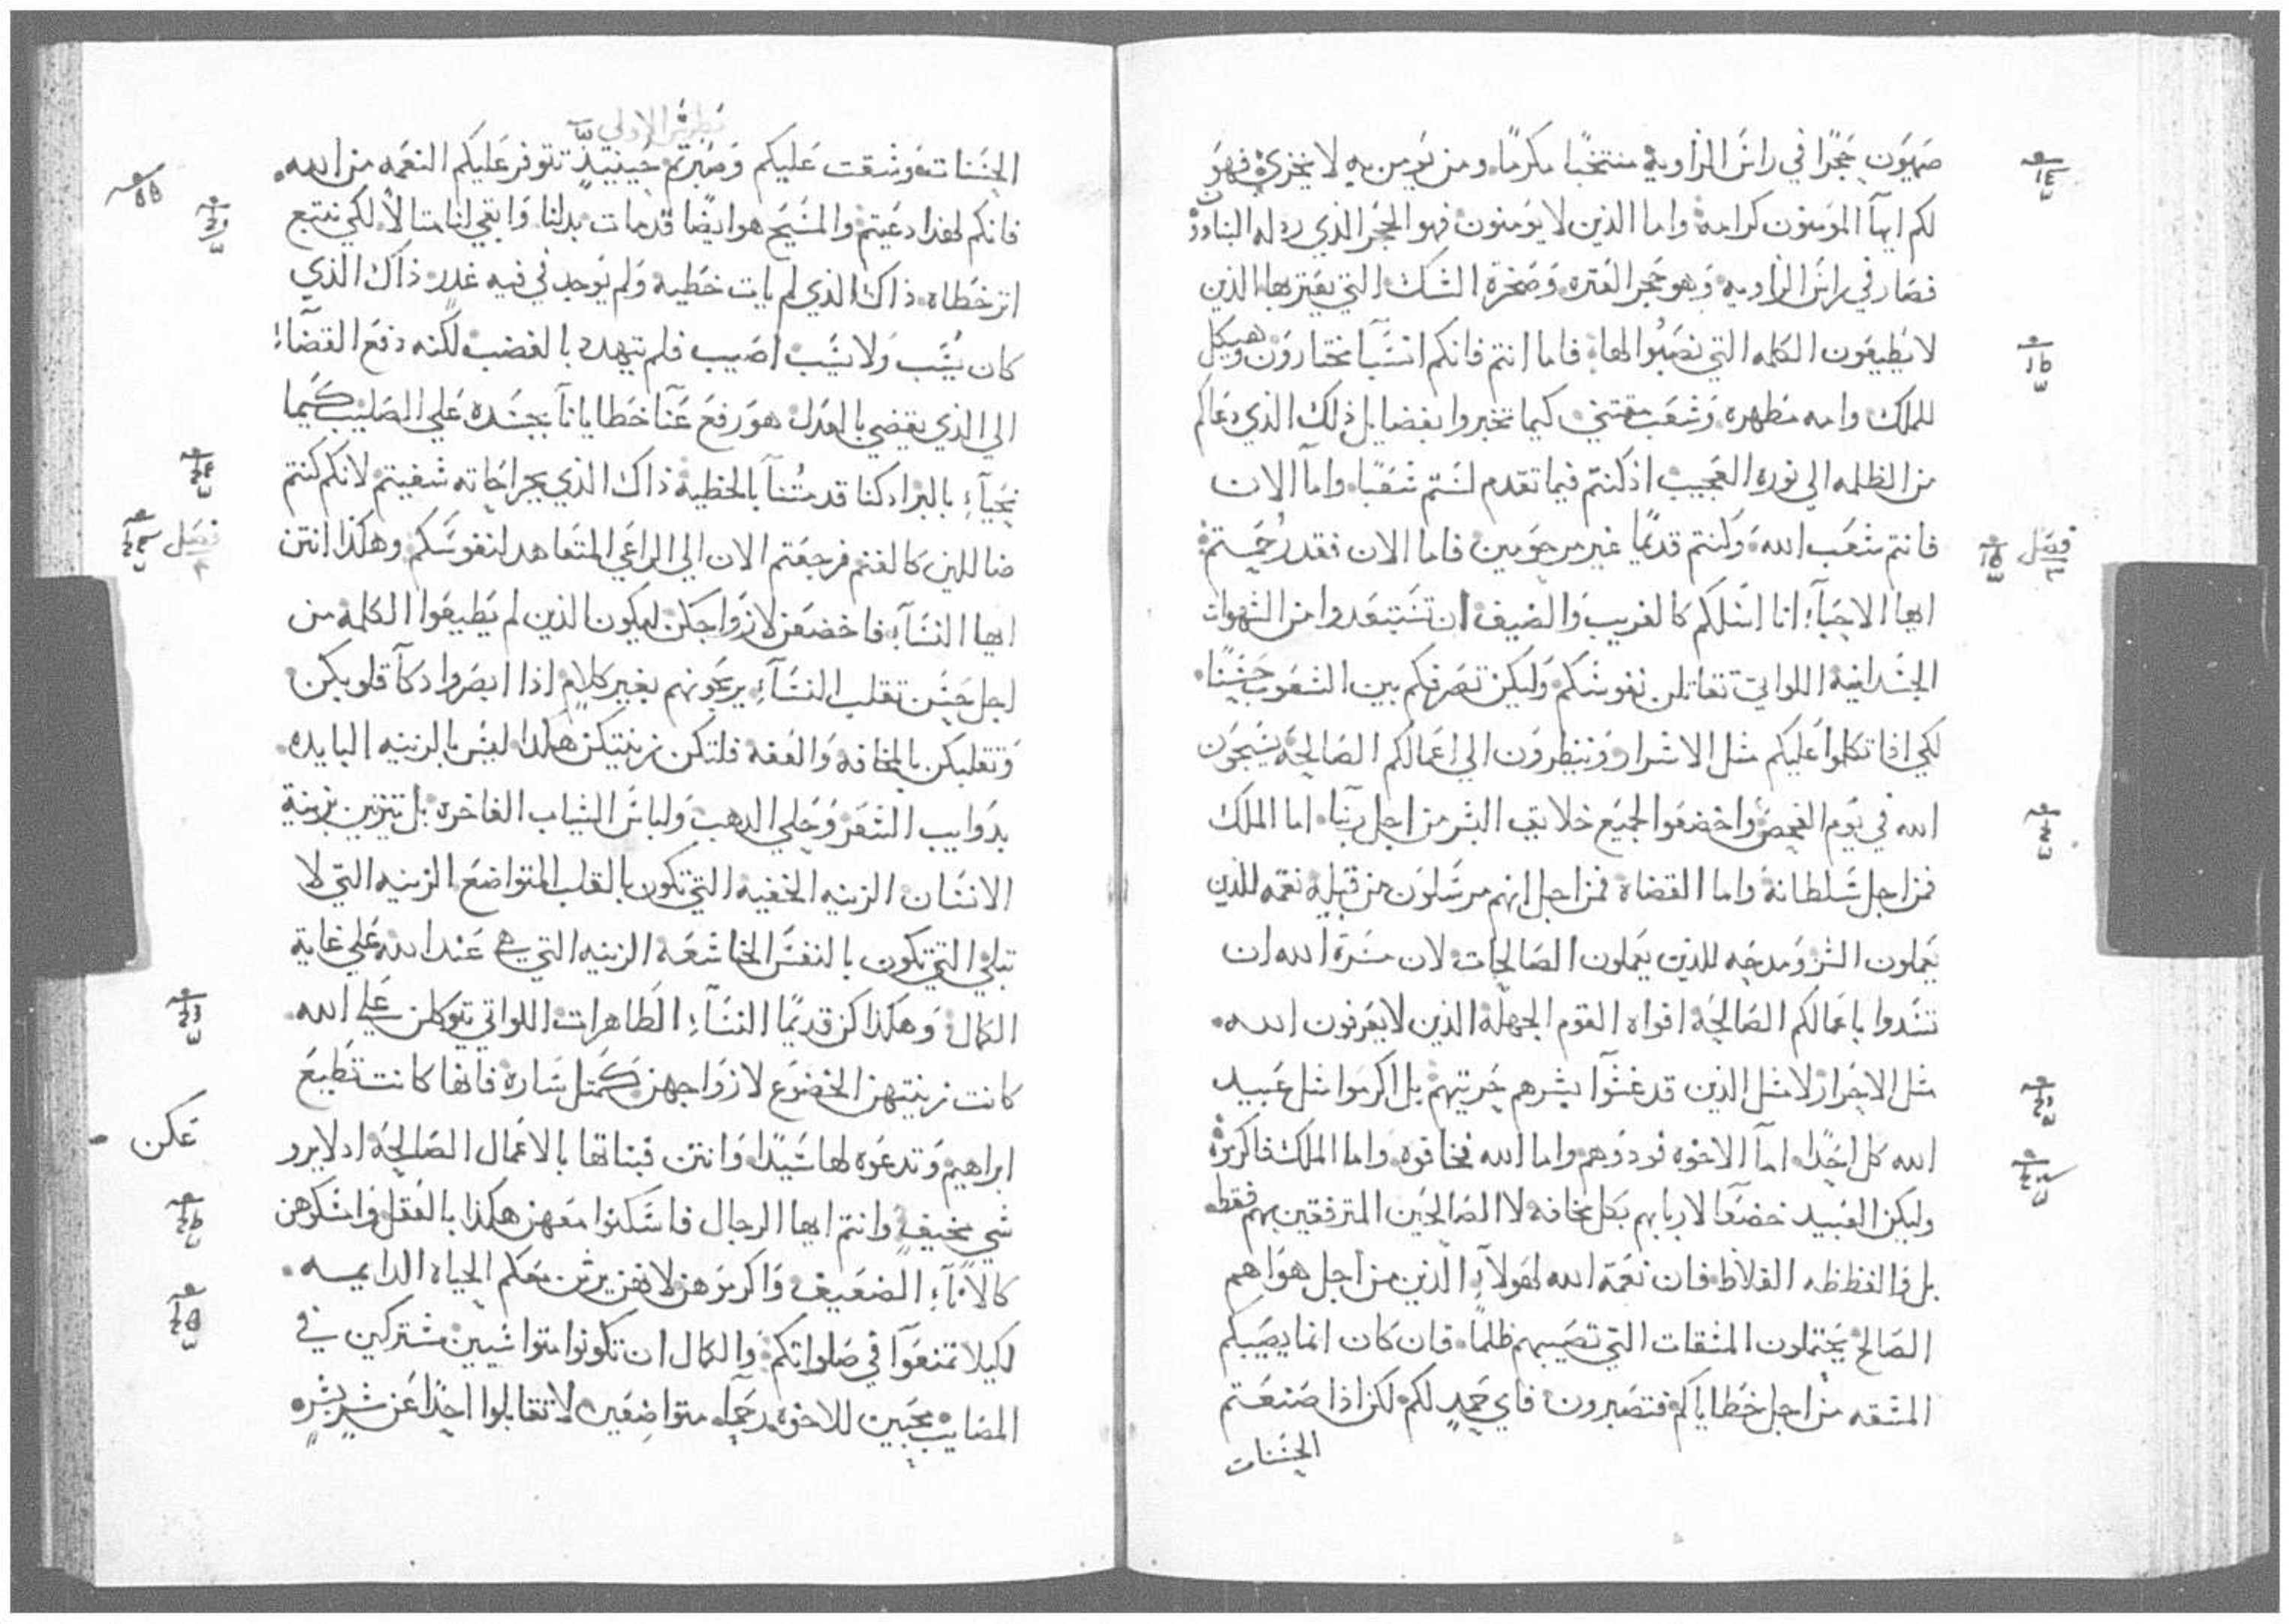 صهيون حجرًا في راس الزاوية منتخبًا مكرمًا. ومن يومن به لا يخزي. فهو
لكم ايها المومنون كرامة. واما الذين لا يومنون فهو الحجر الذي رد له البناوون
فصار في راس الزاويه. وهو حجر العثره وصخرة الشك. التي يعثر بها الذين
لا يطيعون الكلمه التي نصبوا لها. فاما انتم فانكم انسبا مختارون وهيكل
للملك وامه مطهره. وشعب مقتني. كيما تخبروا بفضايل ذلك الذي دعاكم
من الظلمه الي نوره العجيب. اذ كنتم فيما تقدم لستم شعبًا. واما الان
فانتم شعب الله. وكنتم قديمًا غير مرحومين فاما الان فقد رحمتم
فصل
ايها الاحباء انا اسلكم كالغريب والضيف ان تستبعدوا من الشهوات
الجسدانية اللواتي تقاتلن نفوسكم. وليكن تصرفكم بين الشعوب حسنًا.
لكي اذا تكلموا عليكم مثل الاشرار وينظرون الي اعمالكم الصالحة يسبحون
الله في يوم الفحص. واخضعوا لجميع خلايق البشر من اجل ربنا. اما الملك
فمن اجل سلطانه واما القضاة فمن اجل انهم مرسلون من قبله نقمه للذين
يعملون الشر ومدحه للذين يعملون الصالحات. لان مسرة الله ان
تسدوا باعمالكم الصالحة افواه القوم الجهلة الذين لا يعرفون الله.
مثل الاحرار لا مثل الذين قد غشوا بشرهم حريتهم. بل اكرموا مثل عبيد
الله كل احد. اما الاخوه فودوهم. واما الله فخافوه. واما الملك فاكرموه
وليكن العبيد خضعًا لاربابهم بكل مخافه لا الصالحين المترفقين بهم فقط.
بل والفظظه الغلاظ. فان نعمة الله لهولاء الذين من اجل هواهم
الصالح يحتملون المشقات التي تصيبهم ظلمًا. فان كان انما يصيبكم
المشقه من اجل خطاياكم فتصبرون فاي حمد لكم. لكن اذا صنعتم
الحسنات
بطرس الاولي
الحسنات وشقت عليكم وصبرتم حينيذ تتوفر عليكم النعمه من الله.
فانكم لهذا دعيتم. والمسيح هو ايضًا قد مات بدلنا. وابقي لنا مثالًا لكي نتبع
اثر خطاه. ذاك الذي لم يات خطيه ولم يوجد في فيه غدر ذاك الذي
كان يُسَب ولا يسب. اصيب فلم يتهدد بالغضب. لكنه دفع القضاء
الي الذي يقضي بالعدل. هو رفع عنا خطايانا بجسده علي الصليب كيما
نحياء بالبر اذ كنا قد متنا بالخطية ذاك الذي بجراحاته شفيتم لانكم كنتم
ضاللين كالغنم فرجعتم الان الي الراعي المتعاهد لنفوسكم. وهكذا انتن
فصل
ايها النساء. فاخضعن لازواجكن ليكون الذين لم يطيعوا الكلمة من
اجل حسن تقلب النساء يربحونهم بغير كلام. اذا ابصروا ذكاء قلوبكن
وتقلبكن بالمخافه والعفه فلتكن زينتكن هكذا ليس بالزينه البايده.
بذوايب الشعر وحلي الذهب ولباس الثياب الفاخره. بل تتزين بزينة
الانسان. الزينه الخفيه التي تكون بالقلب المتواضع. الزينه التي لا
تبلي التي تكون بالنفس الخاشعه الزينه التي هي عند الله علي غاية
الكمال. وهكذا كن قديمًا النساء الطاهرات اللواتي يتوكلن علي الله.
كانت زينتهن الخضوع لازواجهن كمثل ساره فانها كانت تطيع
ابراهيم وتدعوه لها سيدًا. وانتن فبناتها بالاعمال الصالحة اذ لا يرو
عكن
شي مخيف. وانتم ايها الرجال فاسكنوا معهن هكذا بالعقل وامسكوهن
كالاناء الضعيف. واكرموهن لانهن يرثن معكم الحياة الدايمه.
لكيلا تمتنعوا في صلواتكم. والكمال ان تكونوا متواسيين مشتركين في
المصايب محبين للاخوه رحماء متواضعين لا تقابلوا احدًا عن شر بشر.